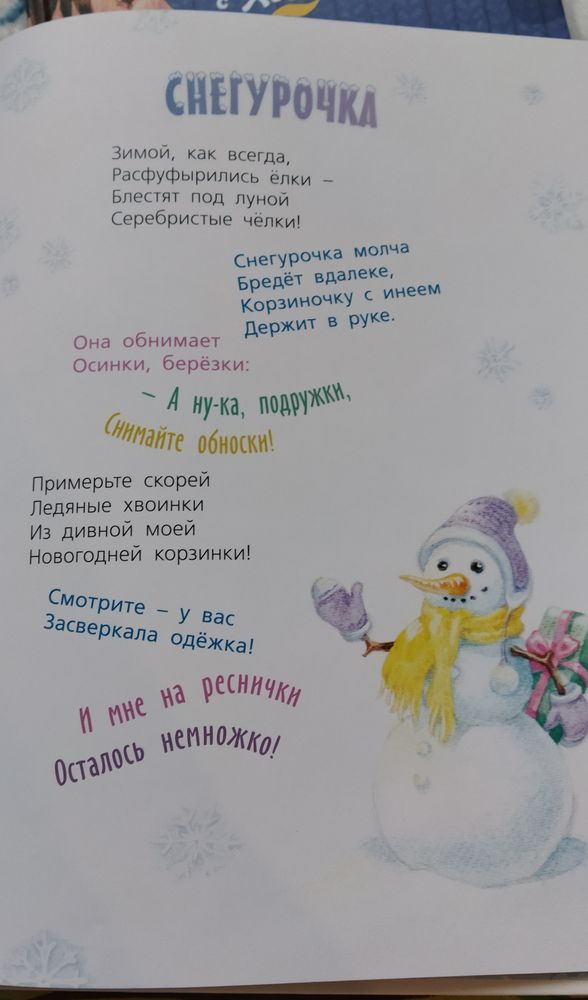 СНЕГУРОЧКА
Зимой, как всегда,
Расфуфырились ёлки –
Блестят под луной
Серебристые чёлки!
Снегурочка молча
Бредёт вдалеке,
Корзиночку с инеем
Держит в руке.
Она обнимает
Осинки, берёзки:
– А ну-ка, подружки,
Снимайте обноски!
Примерьте скорей
Ледяные хвоинки
Из дивной моей
Новогодней корзинки!
Смотрите – у вас
Засверкала одёжка!
И мне на реснички
Осталось немножко!